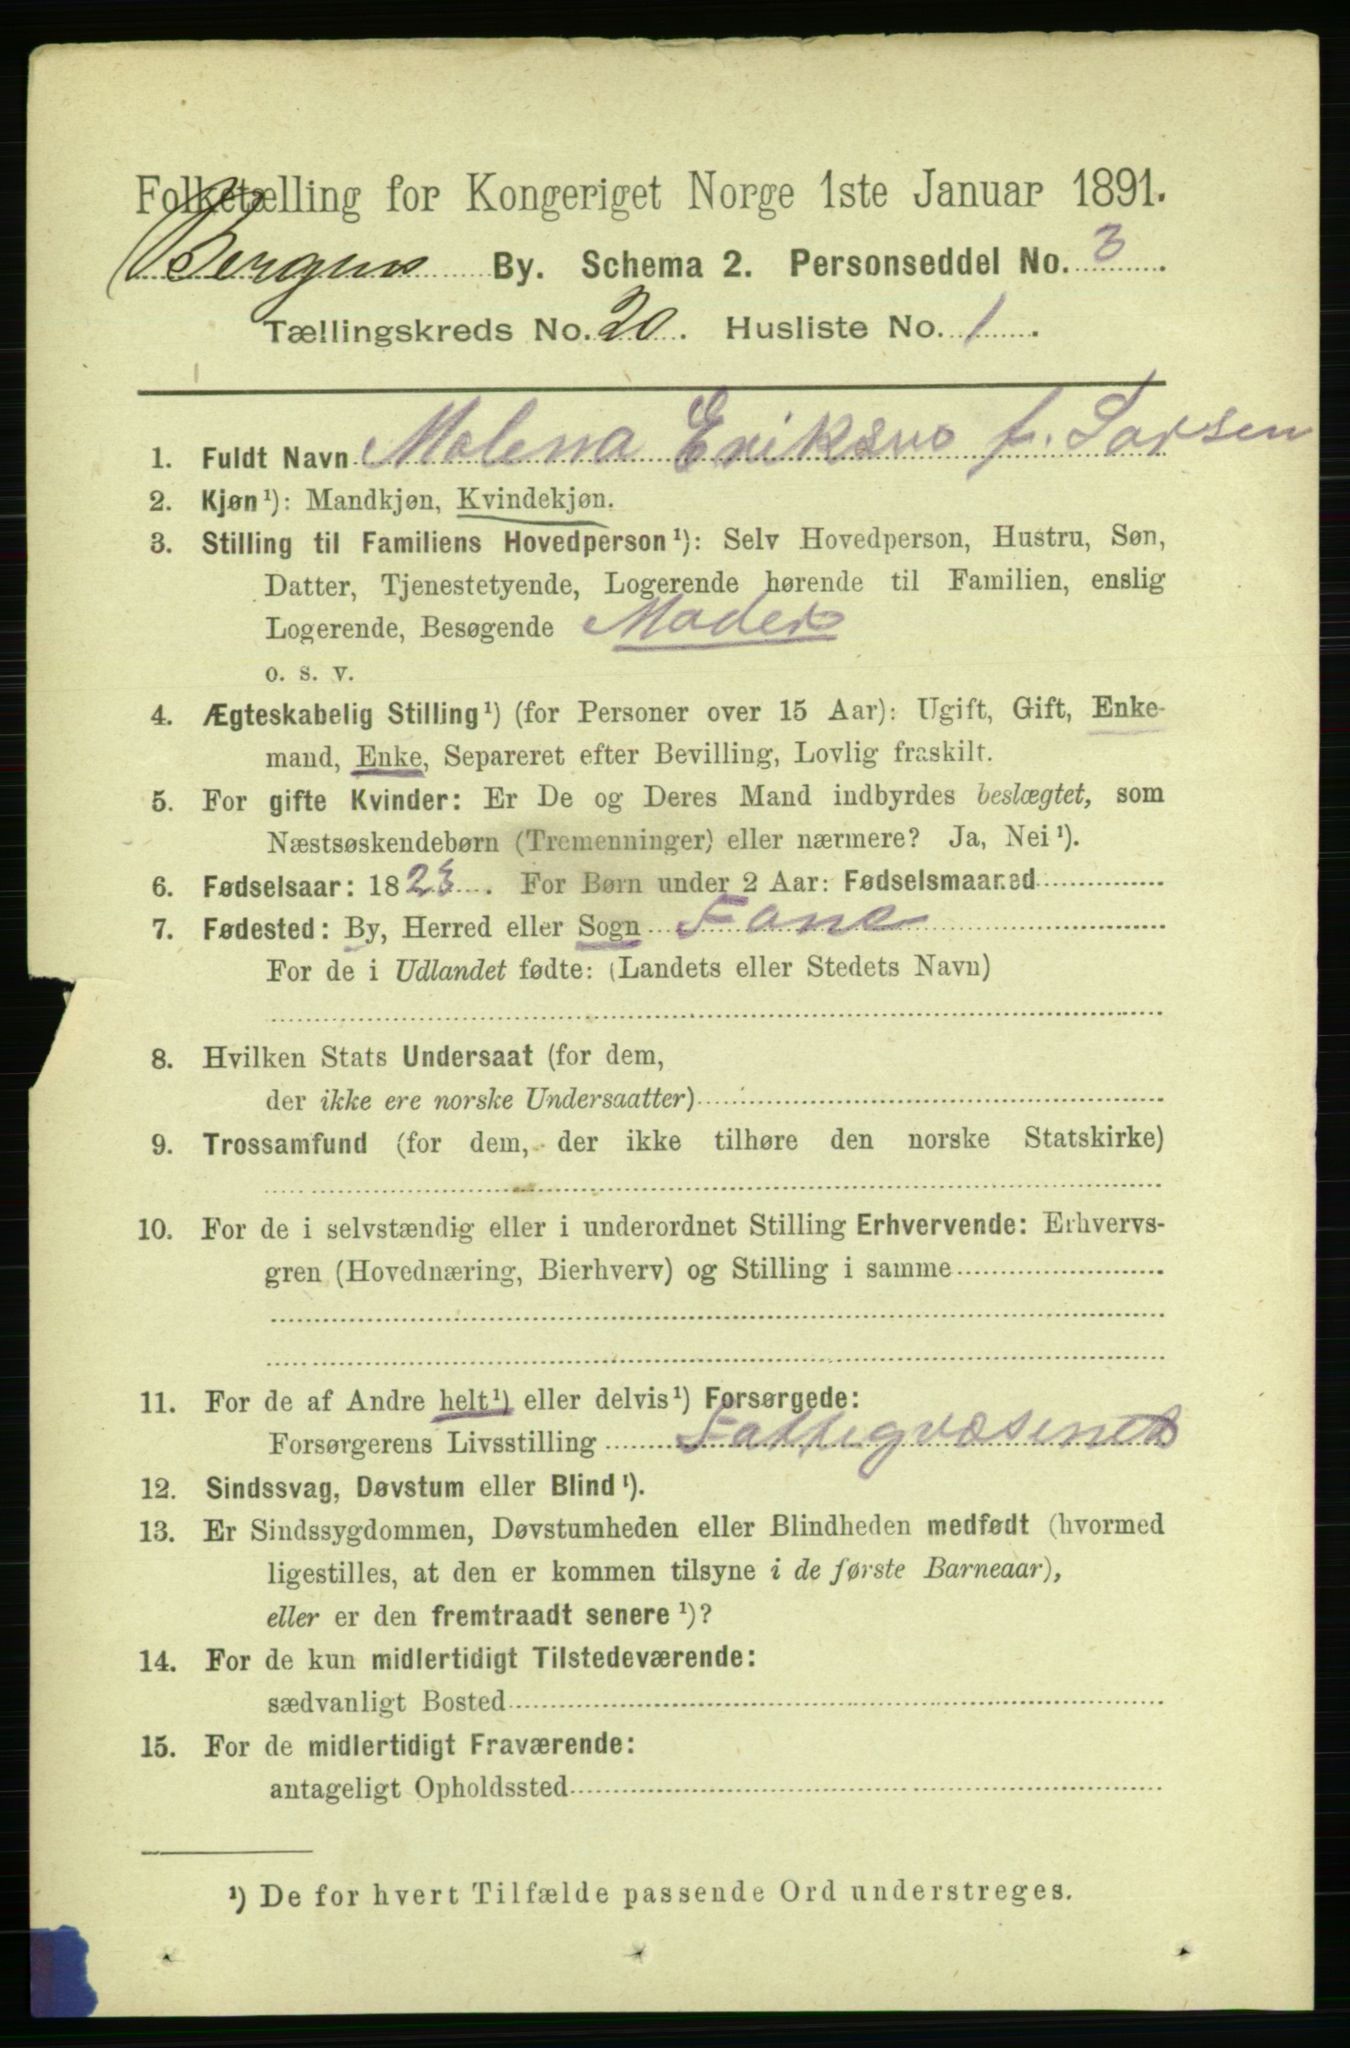 Folketælling for Kongeriget Norge 1ste Januar 1891.
Bergens By. Schema 2. Personseddel No. 3.
Tællingskreds No. 20. Husliste No. 1.
1. Fuldt Navn Molena Eriksen f. Larsen
2. Kjøn¹): Mandkjøn, Kvindekjøn.
3. Stilling til Familiens Hovedperson¹): Selv Hovedperson, Hustru, Søn,
Datter, Tjenestetyende, Logerende hørende til Familien, enslig
Logerende, Besøgende Moder
o. s. v.
4. Ægteskabelig Stilling¹) (for Personer over 15 Aar): Ugift, Gift, Enke-
mand, Enke, Separeret efter Bevilling, Lovlig fraskilt.
5. For gifte Kvinder: Er De og Deres Mand indbyrdes beslægtet, som
Næstsøskendebørn (Tremenninger) eller nærmere? Ja, Nei¹).
6. Fødselsaar: 1823. For Børn under 2 Aar: Fødselsmaaned
7. Fødested: By, Herred eller Sogn Fane
For de i Udlandet fødte: (Landets eller Stedets Navn)
8. Hvilken Stats Undersaat (for dem,
der ikke ere norske Undersaatter)
9. Trossamfund (for dem, der ikke tilhøre den norske Statskirke)
10. For de i selvstændig eller i underordnet Stilling Erhvervende: Erhvervs-
gren (Hovednæring, Bierhverv) og Stilling i samme
11. For de af Andre helt¹) eller delvis¹) Forsørgede:
Forsørgerens Livsstilling Fattigvæsenet
12. Sindssvag, Døvstum eller Blind¹).
13. Er Sindssygdommen, Døvstumheden eller Blindheden medfødt (hvormed
ligestilles, at den er kommen tilsyne i de første Barneaar),
eller er den fremtraadt senere¹)?
14. For de kun midlertidigt Tilstedeværende:
sædvanligt Bosted
15. For de midlertidigt Fraværende:
antageligt Opholdssted
¹) De for hvert Tilfælde passende Ord understreges.